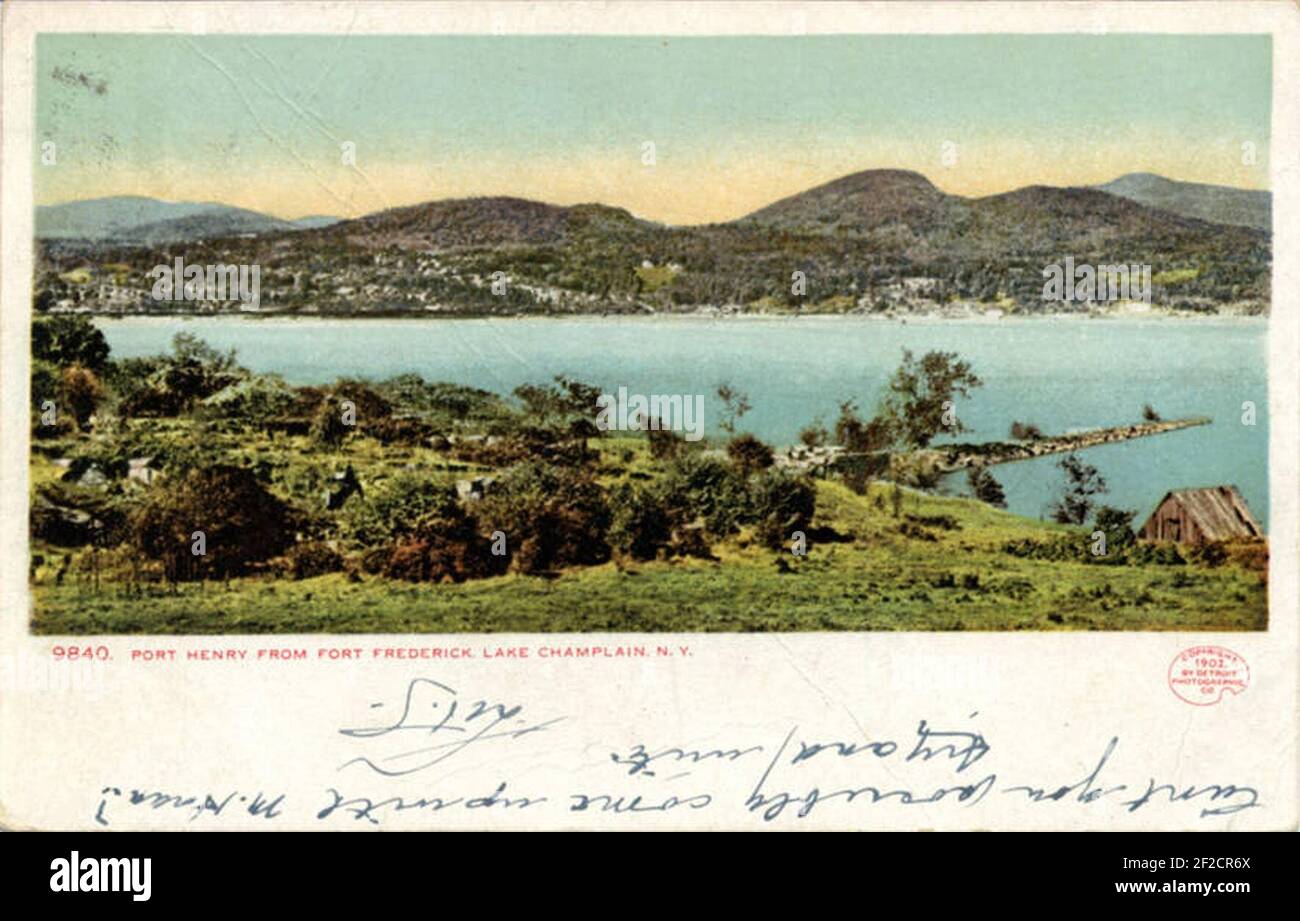 9840. PORT HENRY FROM FORT FREDERICK, LAKE CHAMPLAIN, N. Y.
COPYRIGHT,
1902,
BY DETROIT
PHOTOGRAPHIC
CO.
Cant you possibly come up with M.
Try and write.
alamy
Image ID: 2F2CR6X
www.alamy.com